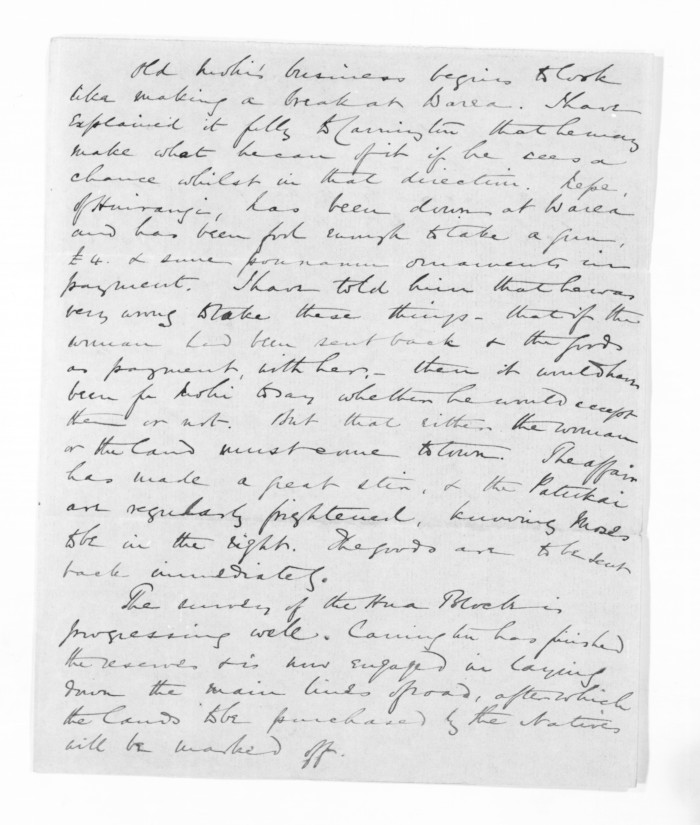 Old Mohi's business begins to look
like making a break at Warea. I have
explained it fully to Carrington that he may
make what he can of it if he sees a
chance whilst in that direction. Repe,
of Huirangi, has been down at Warea
and has been fool enough to take a gun,
£4. & some pounamu ornaments in
payment. I have told him that he was
very wrong to take these things - that if the
woman had been sent back & the goods
as payment, with her, - then it would have
been for Mohi to say whether he would accept
them or not. But that either the woman
or the land must come to town. The affair
has made a great stir, & the Patukai
are regularly frightened, knowing Moses
to be in the right. The goods are to be sent
back immediately.
The survey of the Hua Block is
progressing well. Carrington has finished
the reserves & is now engaged in laying
down the main lines of road, after which
the lands to be purchased by the Natives
will be marked off.